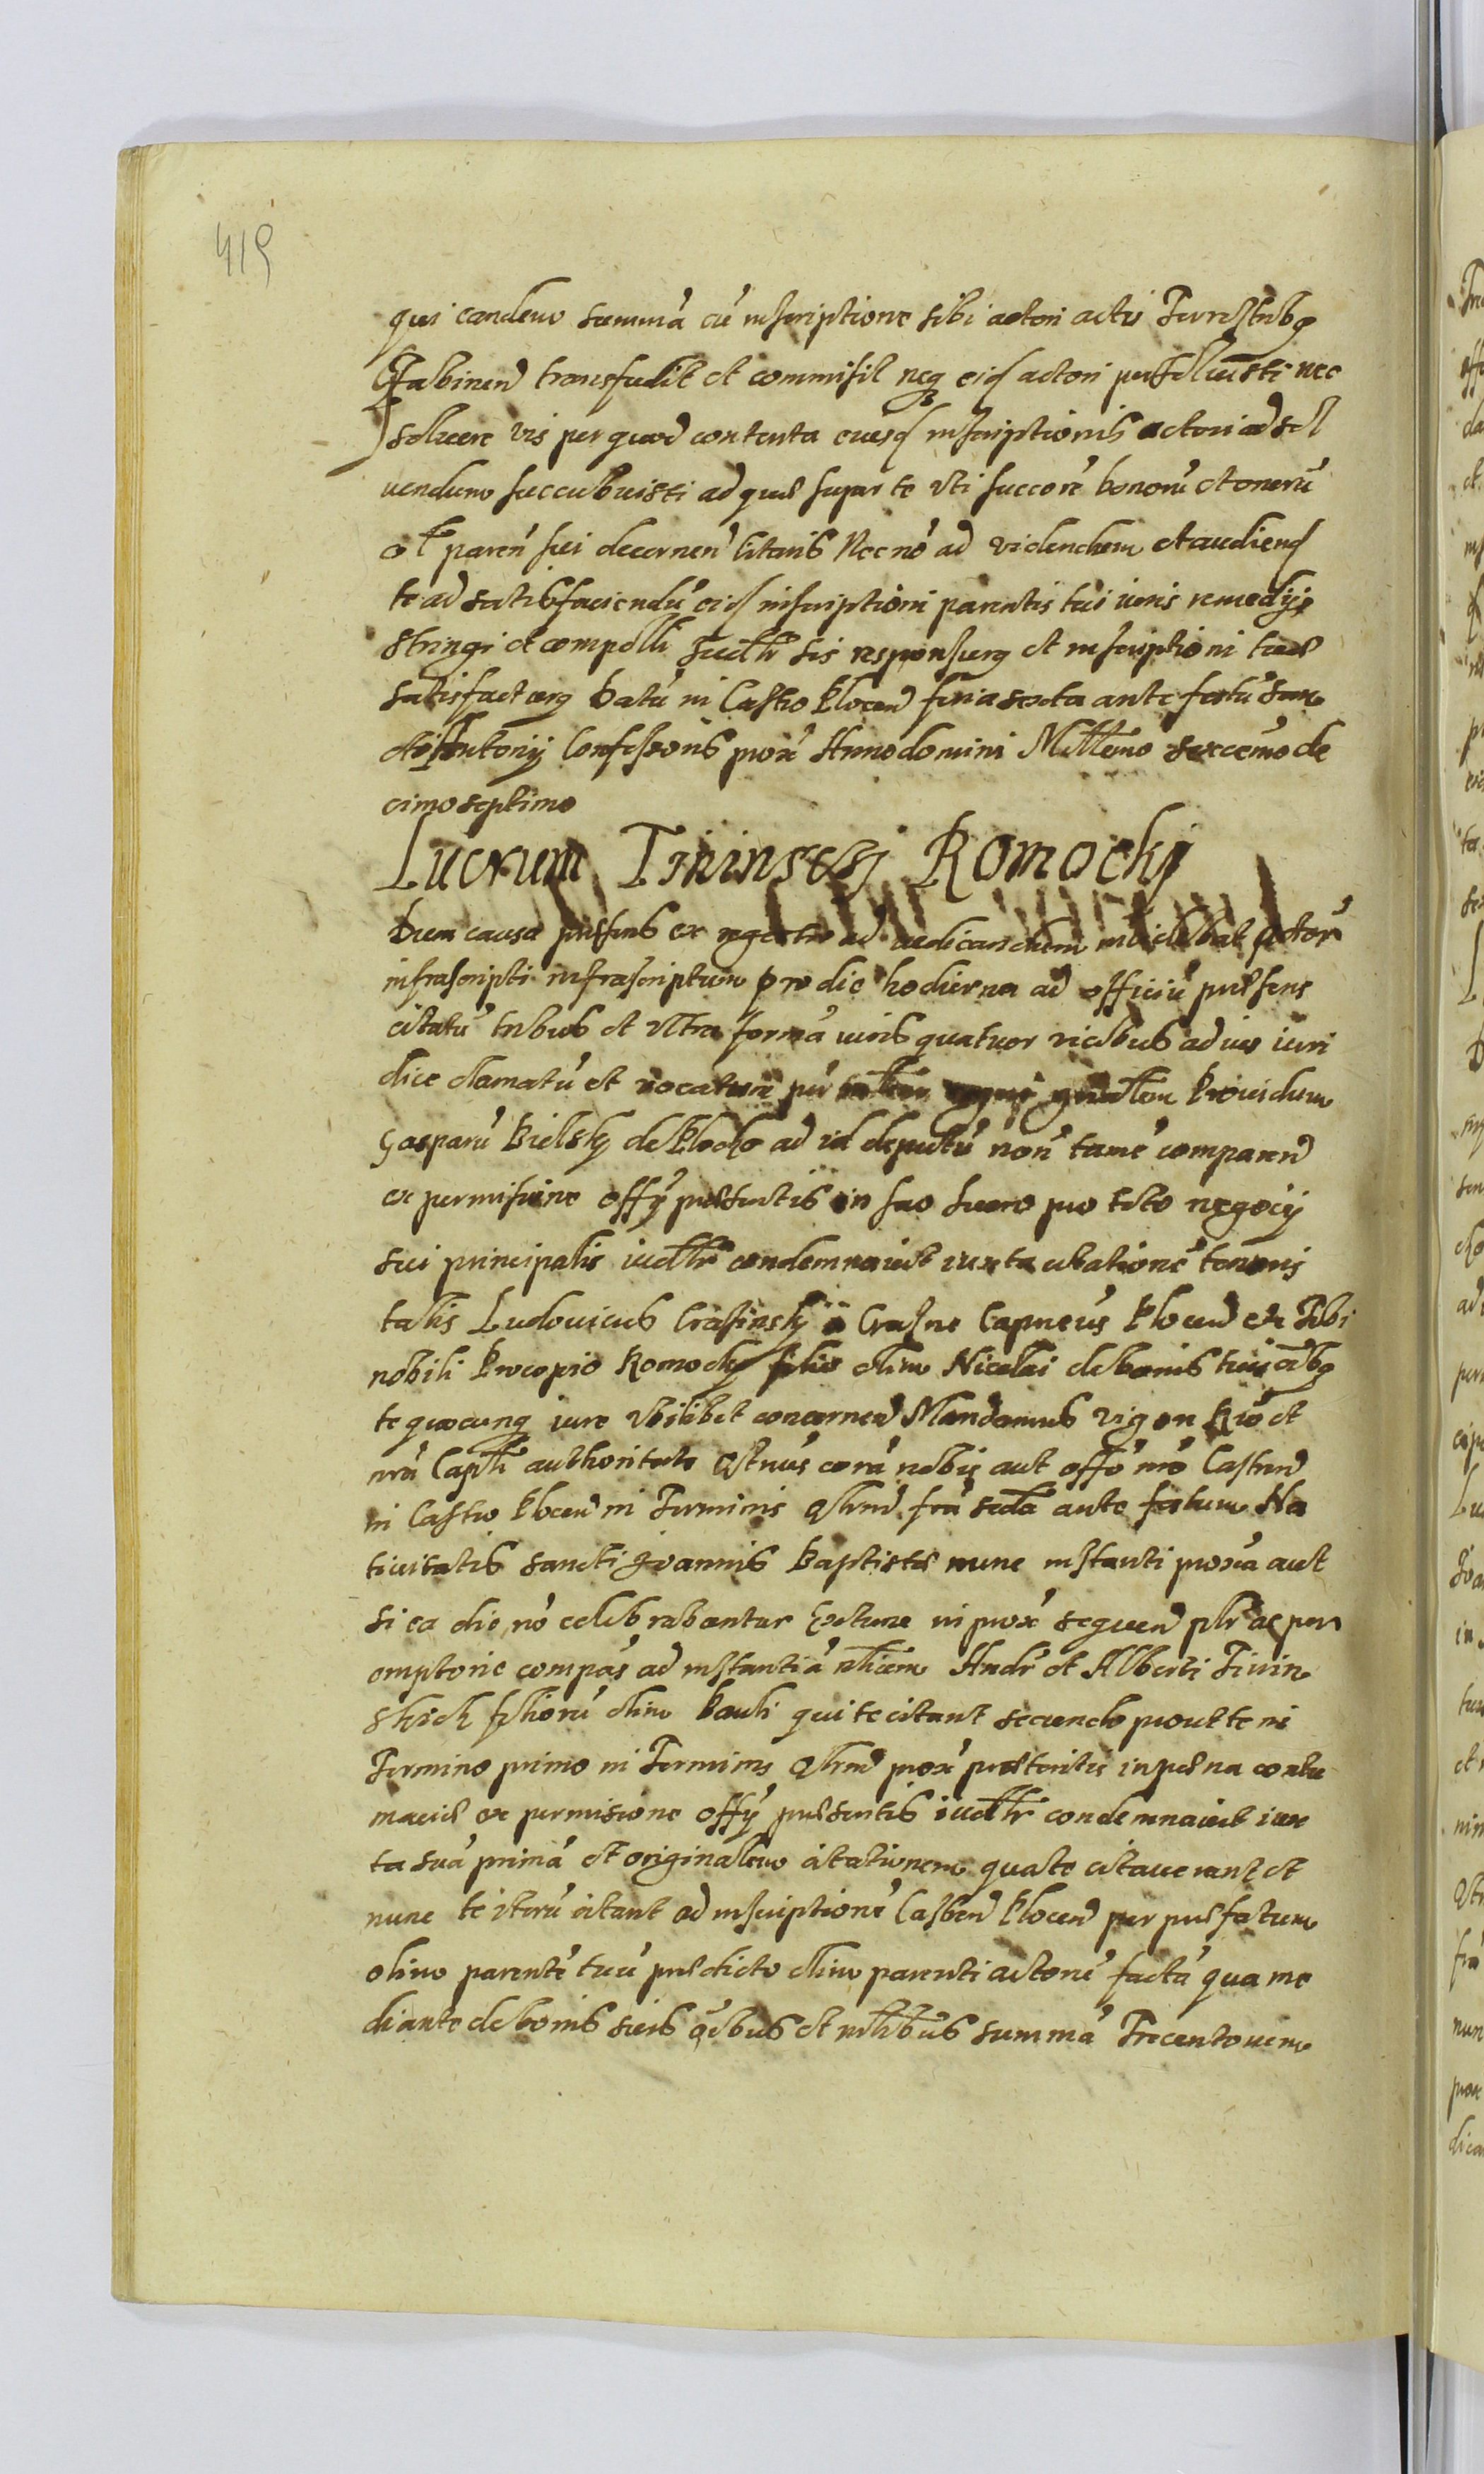 419
qui eandem summā cū inscriptione sibi actori actis Terrestribꝫ
Gąbinen̄ transfudit et commisit neqꝫ eid actori persoluisti nec
soluere vis per quod contenta eiusd inscriptionis actori ad sol
uendum succubuisti ad quae super te vti succorē bonorū et onerū
ol paren̄ sui decernen̄ citaris Nec nō ad videndum et audiend
te ad satisfaciendū eid inscriptioni parentis tui iuris remedijs
stringi et compelli iudłr sis responsurꝫ et inscriptioni tuae
satisfacturꝫ Datū in Castro Plocen̄ feria sexta ante festū San
cti Antonij Confessoris prox̄ Anno domini Millemo sexcemo de
cimo septimo
Lucrum Tininscij Romockj
Dum causa praesens ex regestro ad iudicandum incidebat actor̄
infrascripti infrascriptum pro die hodierna ad officiū praesens
citatū tribus et vltra formā iuris quatuor vicibus ad ius iuri
dice clamatū et vocatum per gnalem Prouidum
Gasparū Bielsky de Plocko ad id deputū non̄ tamē comparen̄
ex permissione offy praesentis in suo lucro pro toto negocij
sui principalis iudłr condemnauit iuxta citationē tenoris
talis Ludouicus Crasinsky a Crasne Capneus Plocen̄ etc Tibi
nobili Procopio Romocky filio olim Nicolai de bonis tuis oibꝫ
te quocunqꝫ iure vbilibet concernen̄ Mandamus vigore Rio et
nrā Capłi authoritate qtnus corā nobis aut offo nro Castren̄
in Castro Plocen̄ in Terminis qlrnd fria seda ante festum Na
tiuitatis Sancti Joannis Baptistae nunc instanti proxa aut
si ea die nō celebrabantur extunc in prox̄ sequen̄ plr ac per
emptorie compas ad instantiā nlium Andr et Alberti Tinin
skich filiorū olim Pauli qui te citant secundo prout te in
Termino primo in Terminis qlrnd prox̄ praeteritis in paena contu
maciae ex permissione offy praesentis iudłr condemnauit iux
ta suā primā et originalem citationem qua te citauerant et
nunc te iterū citant ad inscriptionē Castren̄ Plocen̄ per praefatum
olim parentē tuū praedicto olim parenti actorū factā qua me
diante de bonis suis oibus et nłibus summā Trecentorum